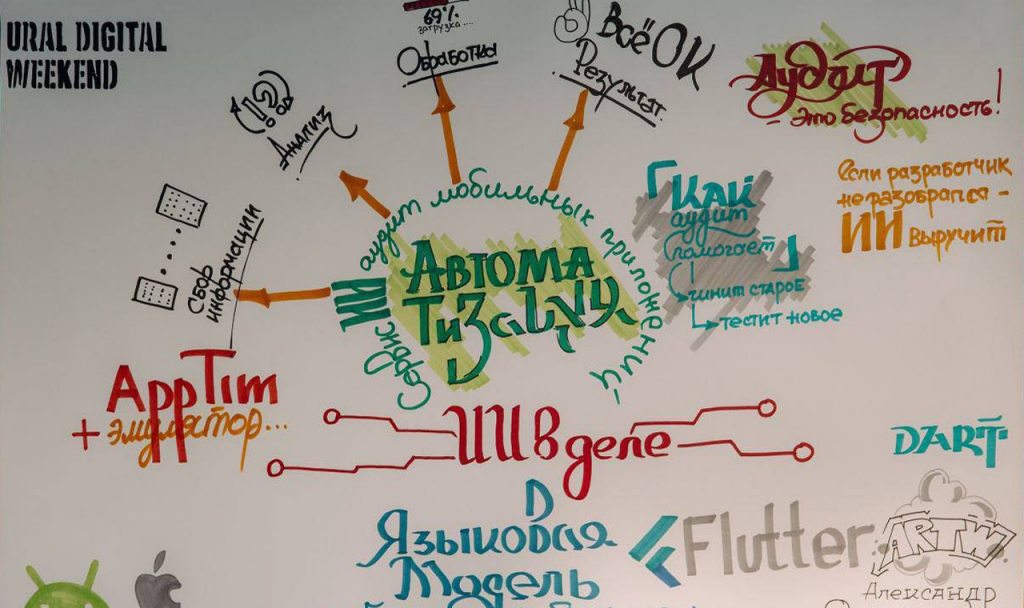 URAL DIGITAL
WEEKEND
69%
загрузка....
Обработка
Всё ОК
Результат.
Аудит
– это безопасность!
!?
Анализ
Сбор
информации
Сервис ИИ аудит мобильных приложений
Автома
тизация
Как
аудит
помогает
чинит старое
тестит новое
Если разработчик
не разобрался –
ИИ выручит
AppTim
+ эмулятор...
ИИ в деле
DART
Языковая
Модель
Flutter
ARTW
Александр